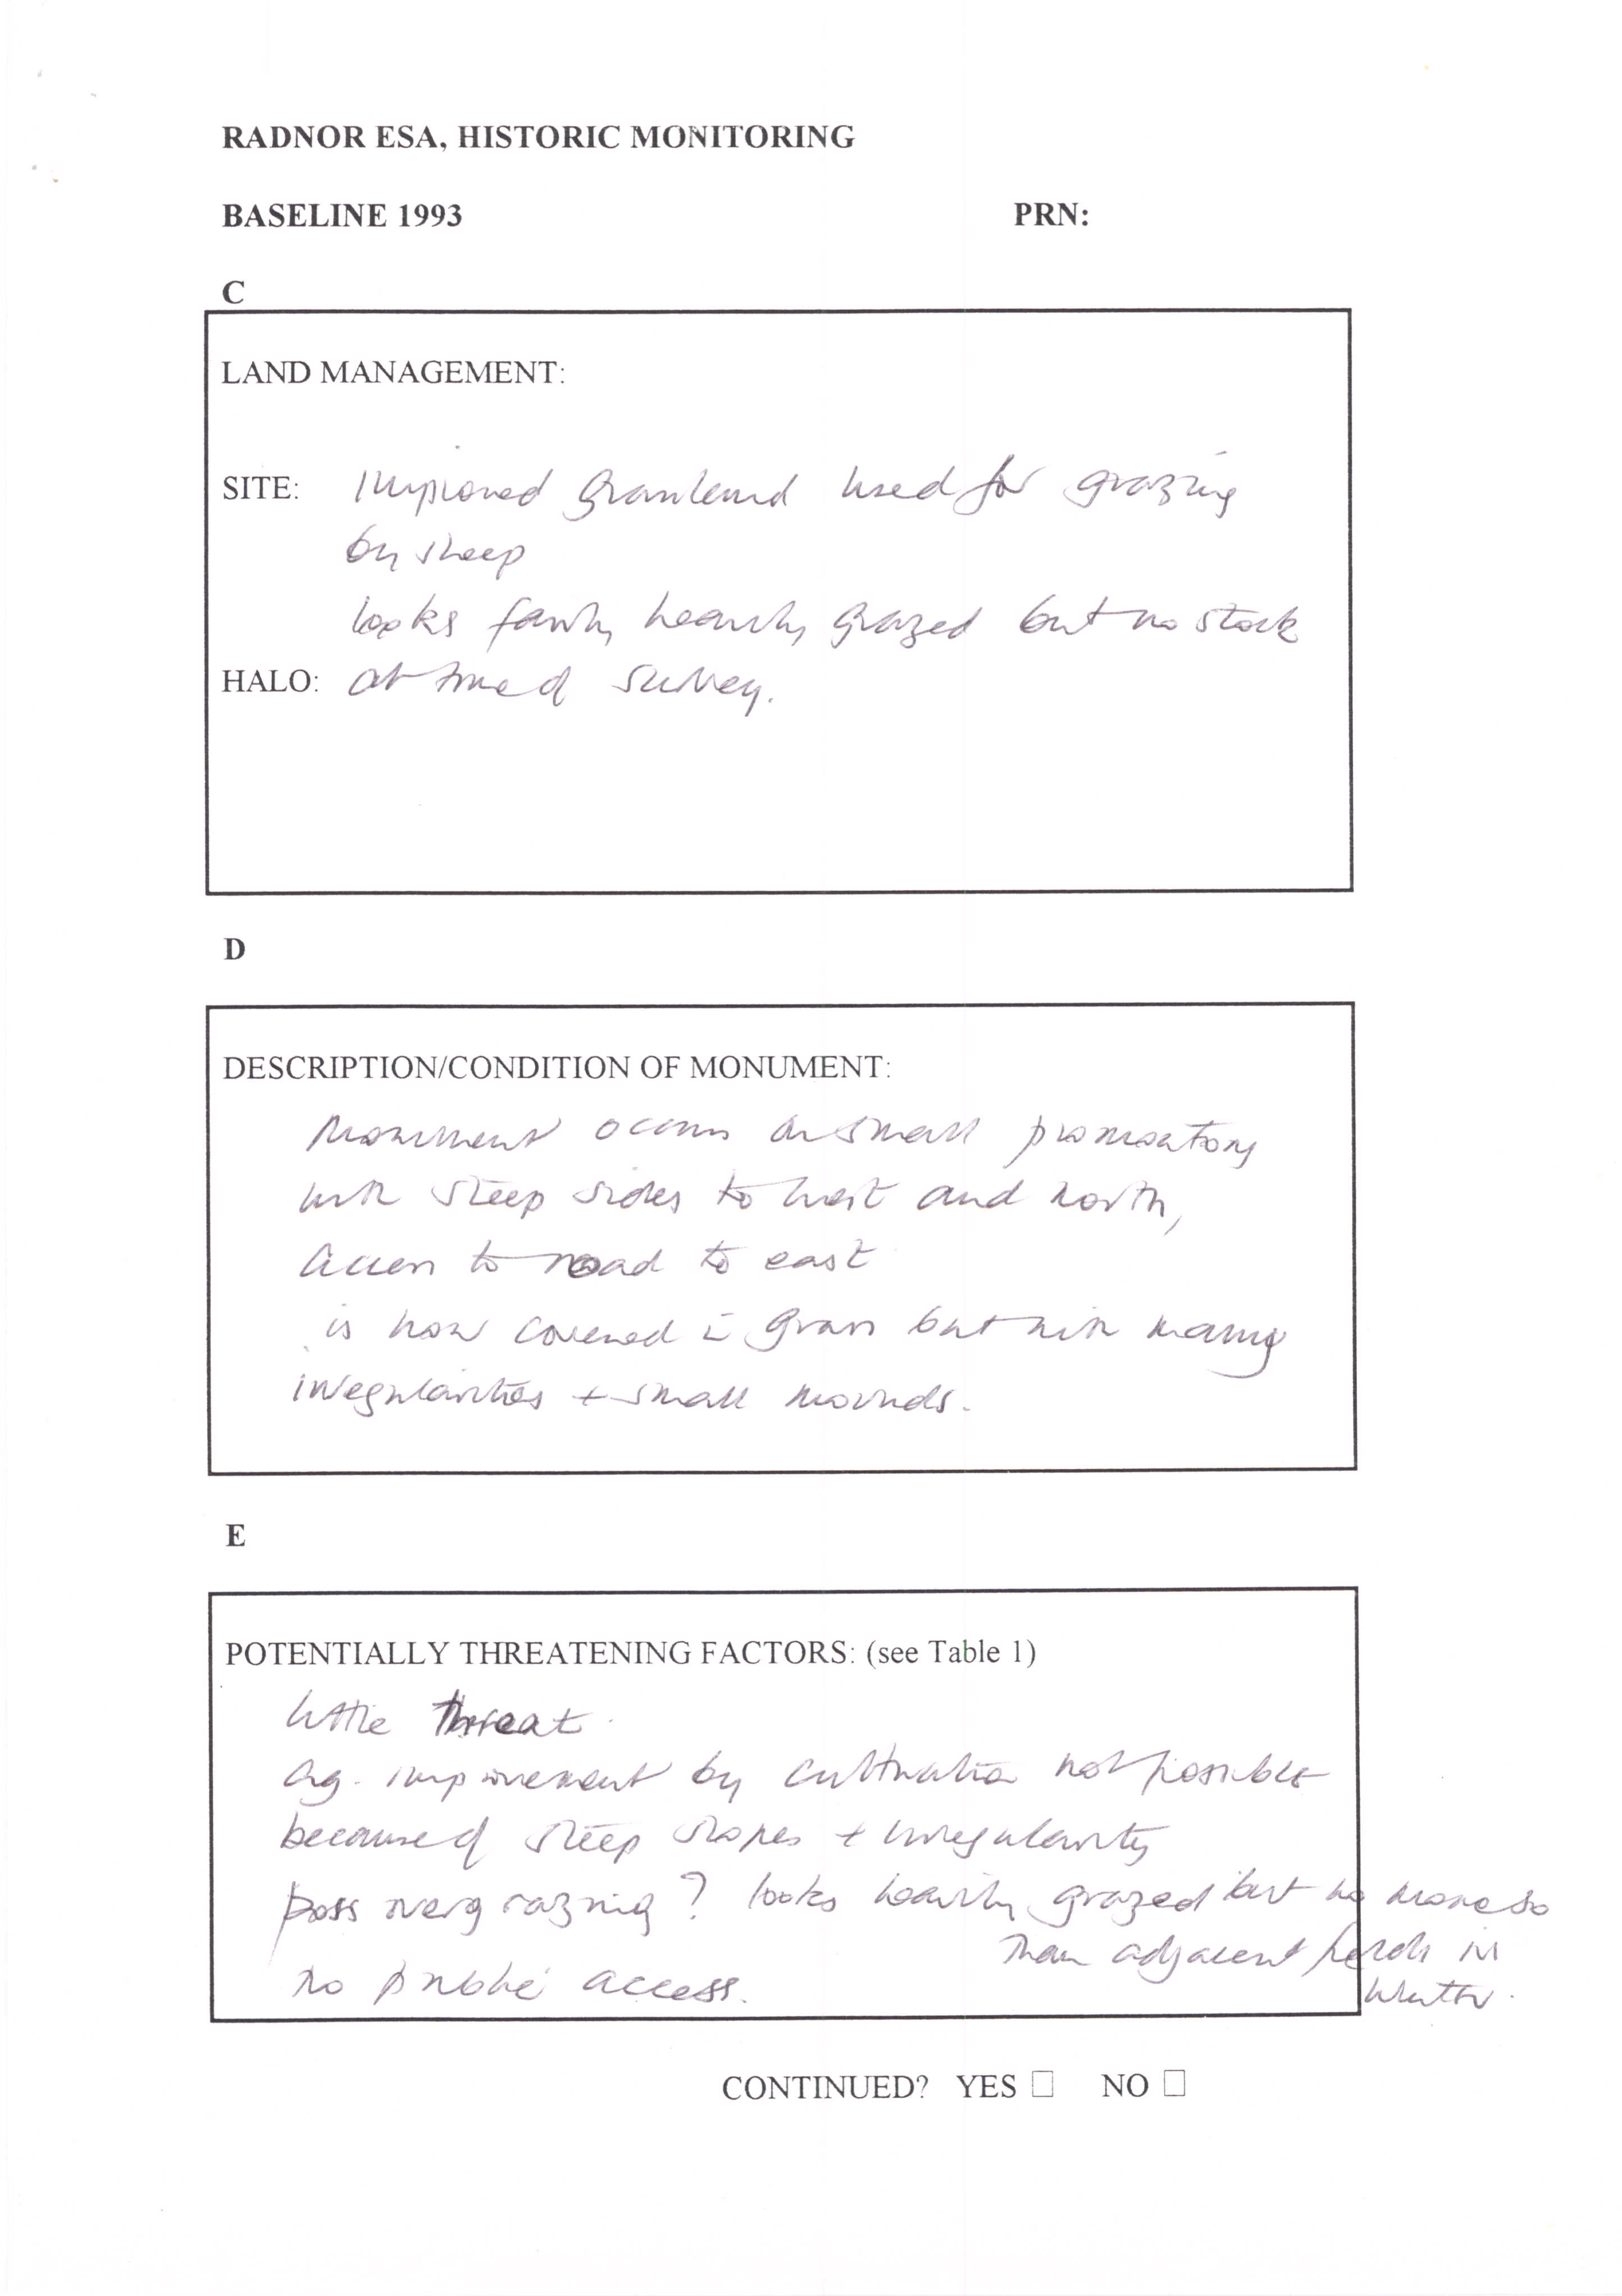 RADNOR ESA, HISTORIC MONITORING
BASELINE 1993 PRN:
C
LAND MANAGEMENT:
SITE: Improved grassland used for grazing
by sheep
looks fairly heavily grazed but no stock
HALO: at time of survey.
D
DESCRIPTION/CONDITION OF MONUMENT:
Monument occurs on small promontory
with steep sides to west and north,
access to road to east
is now covered in grass but with many
irregularities + small mounds.
E
POTENTIALLY THREATENING FACTORS: (see Table 1)
little threat.
ag. improvement by cultivation not possible
because of steep slopes + irregularity
poss overgrazing? looks heavily grazed but no more so
than adjacent fields in
winter.
no public access.
CONTINUED? YES □ NO □